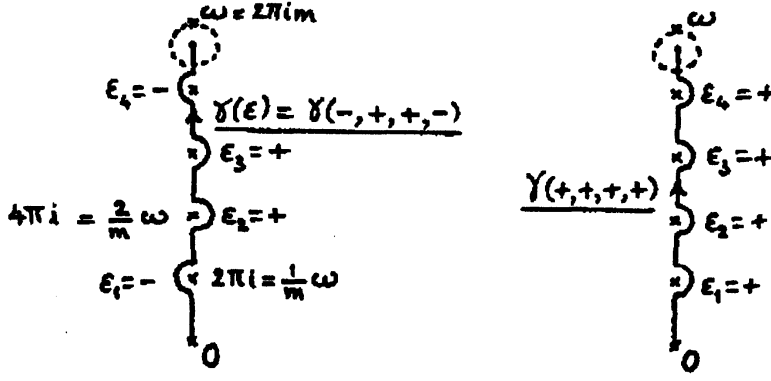 ω = 2πim
ε₄ = −
γ(ε) = γ(−,+,+,−)
ε₃ = +
4πi = 2/m ω
ε₂ = +
ε₁ = −
2πi = 1/m ω
0
ω
ε₄ = +
ε₃ = +
γ(+,+,+,+)
ε₂ = +
ε₁ = +
0